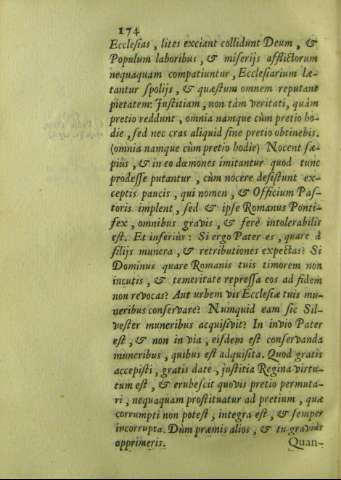 174
Ecclesias, lites exciant collidunt Deum, &
Populum laboribus, & miserijs afflictorum
nequaquam compatiuntur, Ecclesiarium læ-
tantur spolijs, & quæstum omnem reputant
pietatem: Justitiam, non tàm veritati, quàm
pretio reddunt, omnia namque cùm pretio ho-
die, sed nec cras aliquid sine pretio obtinebis.
(omnia namque cùm pretio hodie) Nocent sæ-
piùs, & in eo dæmones imitantur quod tunc
prodesse putantur, cùm nocere desistunt ex-
ceptis paucis, qui nomen, & Officium Pas-
toris implent, sed & ipse Romanus Ponti-
fex, omnibus gravis, & ferè intolerabilis
est. Et inferiùs: Si ergo Pater es, quare à
filijs munera, & retributiones expectas? Si
Dominus quare Romanis tuis timorem non
incutis, & temeritate repressa eos ad fidem
non revocas? Aut urbem vis Ecclesiæ tuis mu-
neribus conservare? Numquid eam sic Sil-
vester muneribus acquisivit? In invio Pater
est, & non in via, eisdem est conservanda
muneribus, quibus est adquisita. Quod gratis
accepisti, gratis date, justitia Regina virtu-
tum est, & erubescit quovis pretio permuta-
ri, nequaquam prostituatur ad pretium, quæ
corrumpti non potest, integra est, & semper
incorrupta. Dùm præmis alios, & tu graviùs
opprimeris. Quan-